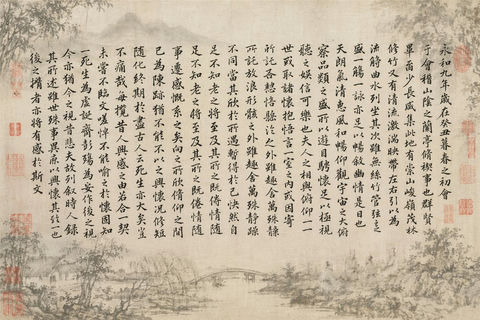 永和九年歲在癸丑暮春之初會
于會稽山陰之蘭亭脩稧事也群賢
畢少長咸集此地有崇山峻嶺茂林
修竹又有清流激湍映帶左右引以為
流觴曲水列坐其次雖無絲竹管弦之
盛一觴一詠亦足以暢敘幽情是日也
天朗氣清惠風和暢仰觀宇宙之大俯
察品類之盛所以遊目騁懷足以極視
聽之娛信可樂也夫人之相與俯仰一
世或取諸懷抱悟言一室之內或因寄
所託各之外雖趣舍萬殊靜
所託放浪形骸之外雖趣舍萬殊靜躁
不同當其欣於所遇暫得於己快然自
足不知老之將至及其所之既倦情隨
足不知老之將至及其所之既倦情隨
事遷感慨系之矣向之所欣俯仰之間
已為陳跡猶不能不以之興懷況修短
隨化終期於盡古人云死生亦大矣豈
不痛哉每攬昔人興感之由若合一契
未嘗不臨文嗟悼不能喻之於懷固知
一死生為虛誕齊彭殤為妄作後之視
今亦猶今之視昔悲夫故列敘時人錄
其所述雖世殊事異所以興懷其致一也
後之攬者亦將有感於斯文